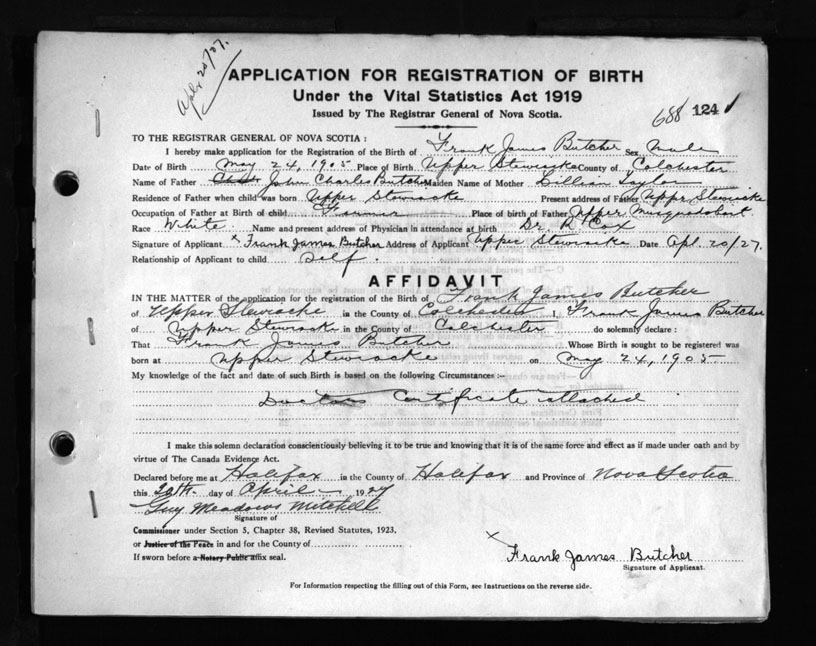 Apl 20/27.
APPLICATION FOR REGISTRATION OF BIRTH
Under the Vital Statistics Act 1919
Issued by The Registrar General of Nova Scotia.
688 124
TO THE REGISTRAR GENERAL OF NOVA SCOTIA :
I hereby make application for the Registration of the Birth of Frank James Butcher Sex Male
Date of Birth May 24, 1905 Place of Birth Upper Stewiacke County of Colchester
Name of Father John Charles Butcher Maiden Name of Mother Lillian Taylor
Residence of Father when child was born Upper Stewiacke Present address of Father Uppr Stewiacke
Occupation of Father at Birth of child Farmer Place of birth of Father Upper Musquodoboit
Race White Name and present address of Physician in attendance at birth Dr. R Cox
Signature of Applicant x Frank James Butcher Address of Applicant Upper Stewiacke Date Apl. 20/27.
Relationship of Applicant to child Self.
AFFIDAVIT
IN THE MATTER of the application for the registration of the Birth of Frank James Butcher
of Upper Stewiacke in the County of Colchester I, Frank James Butcher
of Upper Stewiacke in the County of Colchester do solemnly declare :
That Frank James Butcher Whose Birth is sought to be registered was
born at Upper Stewiacke on May 24, 1905
My knowledge of the fact and date of such Birth is based on the following Circumstances :—
Doctors Certificate attached
I make this solemn declaration conscientiously believing it to be true and knowing that it is of the same force and effect as if made under oath and by
virtue of The Canada Evidence Act.
Declared before me at Halifax in the County of Halifax and Province of Nova Scotia
this 20th day of April 1927
Guy Meadows Mitchell
Signature of
Commissioner under Section 5, Chapter 38, Revised Statutes, 1923,
or Justice of the Peace in and for the County of
If sworn before a Notary Public affix seal.
x Frank James Butcher
Signature of Applicant.
For Information respecting the filling out of this Form, see Instructions on the reverse side.